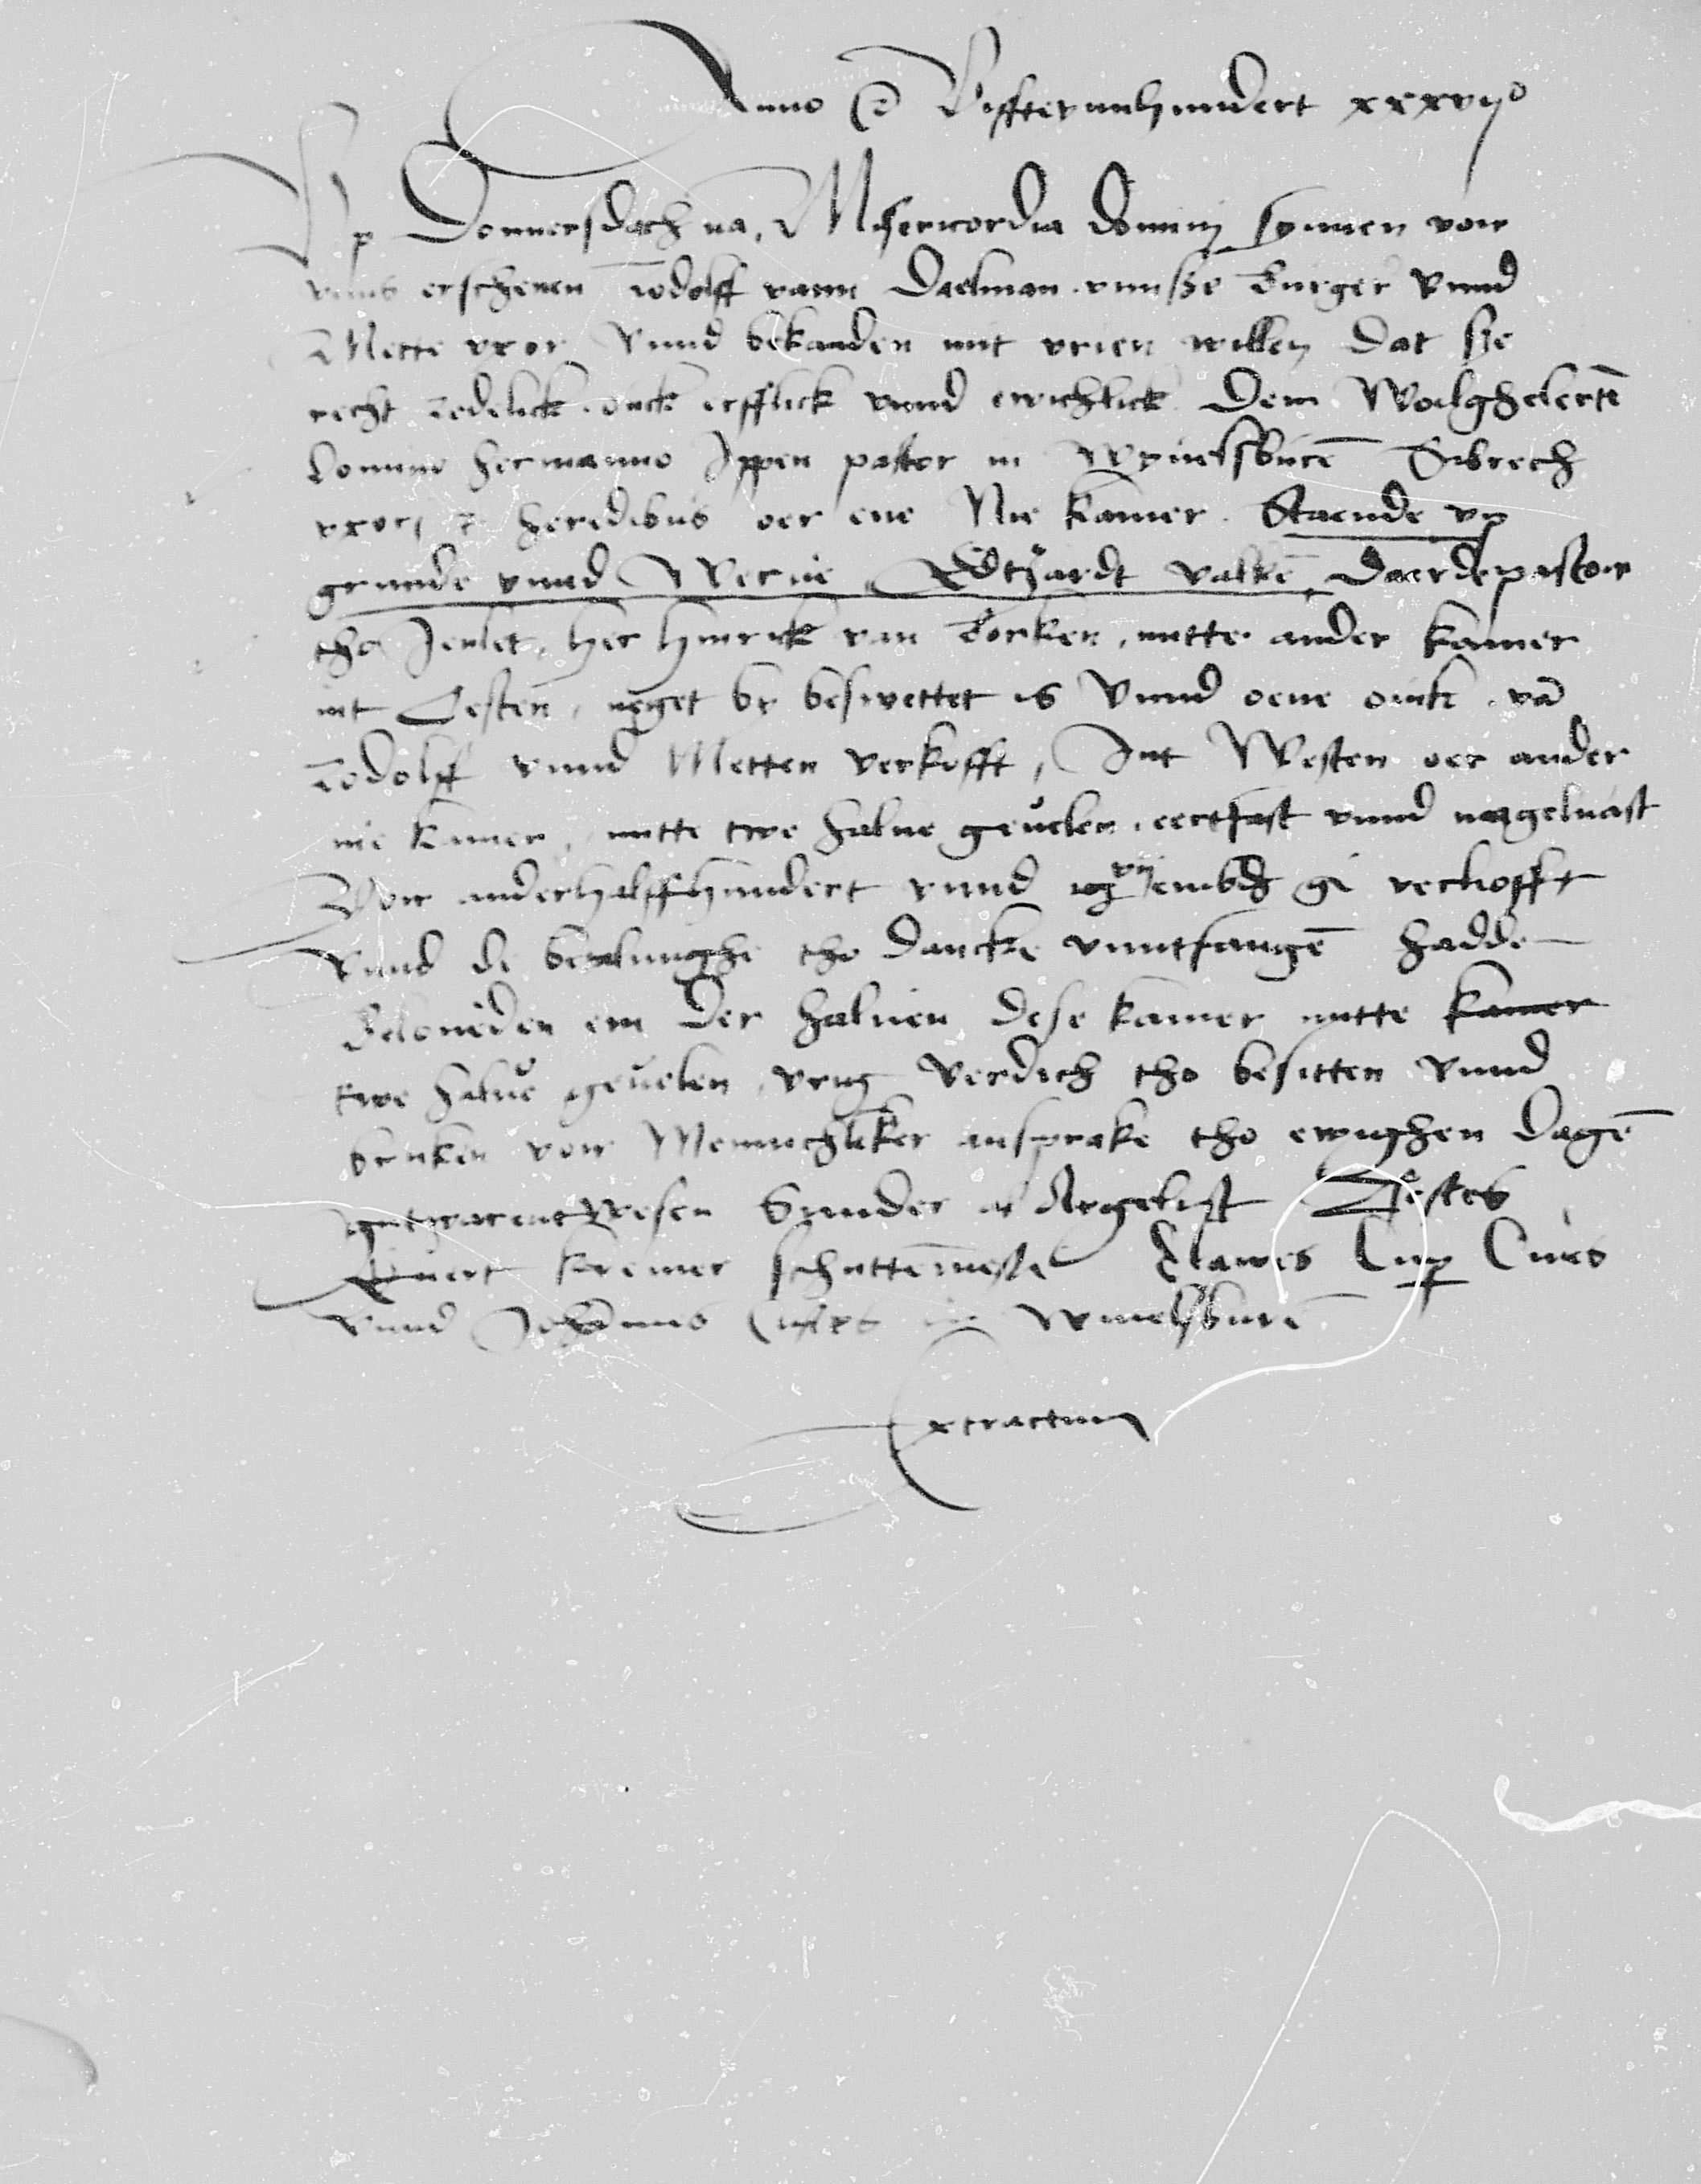 Anno &c Viffteynhundert xxxvijº
Vp Donnersdach na, Misericordia domini synnen vor
vnns erschenen Rodolff vann Daelman vnnse burger vnnd
Mette vxor vnnd bekanden mit vrien willen dat sie
recht redelick oick erfflick vnnd ewichlick Dem Wolghelertē
domino hermanno Ippen pastor in Wyvelsburē Sibrech
vxori & heredibus oer ene Nie kamer. Staende vp
grunde vnnd Werue, Edtzardt valkē, Daer de pastor
tho Jenlet, her hinrick van borken, mitte ander kamer
int Oesten, negest by beswettet is vnnd oene oick vā
Rodolff vnnd Metten verkofft, Int Westen oer ander
nie kamer, mitte twe halue geuelen, eertfast vnnd nageluast
Vor anderhalffhundert vnnd embd gl verkofft
vnnd de betalinghe tho dancke vnntfangē hadde
Beloueden em der haluen dese kamer mitte kamer
twe halue geuelen vryg verdich tho besitten vnnd
bruken vor Mennichlīker ansprake tho ewighen dagē
tho Wesen Sunder Argelist Testes
Euert kremer schuttemester Clawes Cup
vnnd Johannes in Wiuelsburē
Extractum